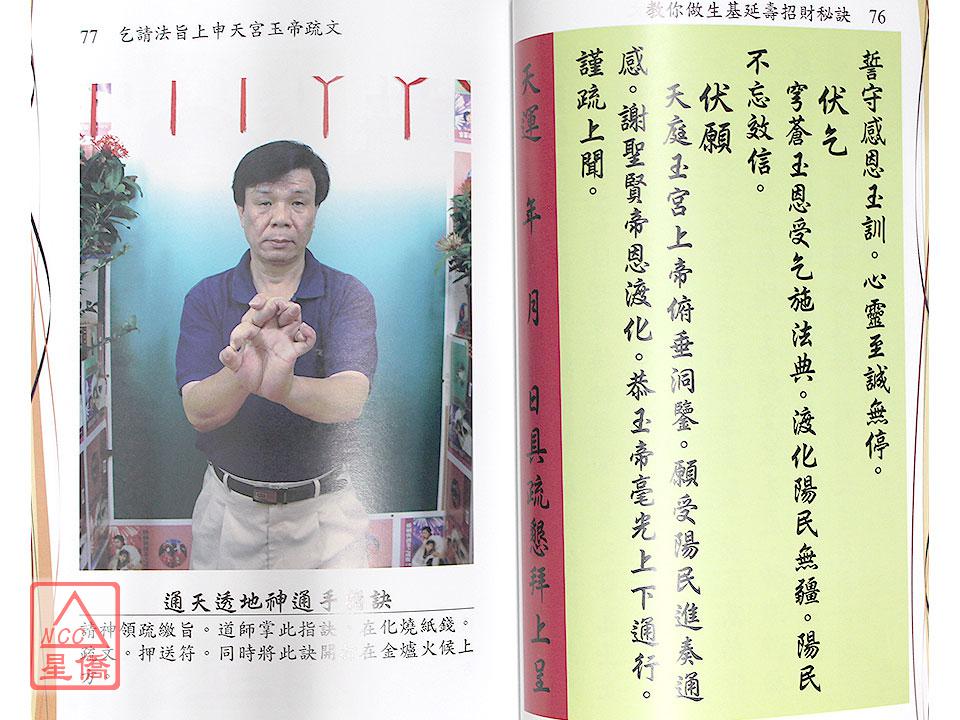 教你做生基延壽招財秘訣 76
誓守感恩玉訓。心靈至誠無停。
伏乞
穹蒼玉恩受乞施法典。渡化陽民無疆。陽民
不忘效信。
伏願
天庭玉宮上帝俯垂洞鑒。願受陽民進奏通
感。謝聖賢帝恩渡化。恭玉帝毫光上下通行。
謹疏上聞。
天運 年 月 日具疏懇拜上呈
77 乞請法旨上申天宮玉帝疏文
通天透地神通手指訣
請神領疏繳旨。道師掌此指訣。在化燒紙錢。
疏文。押送符。同時將此訣開 在金爐火候上
方。
NCC
星僑